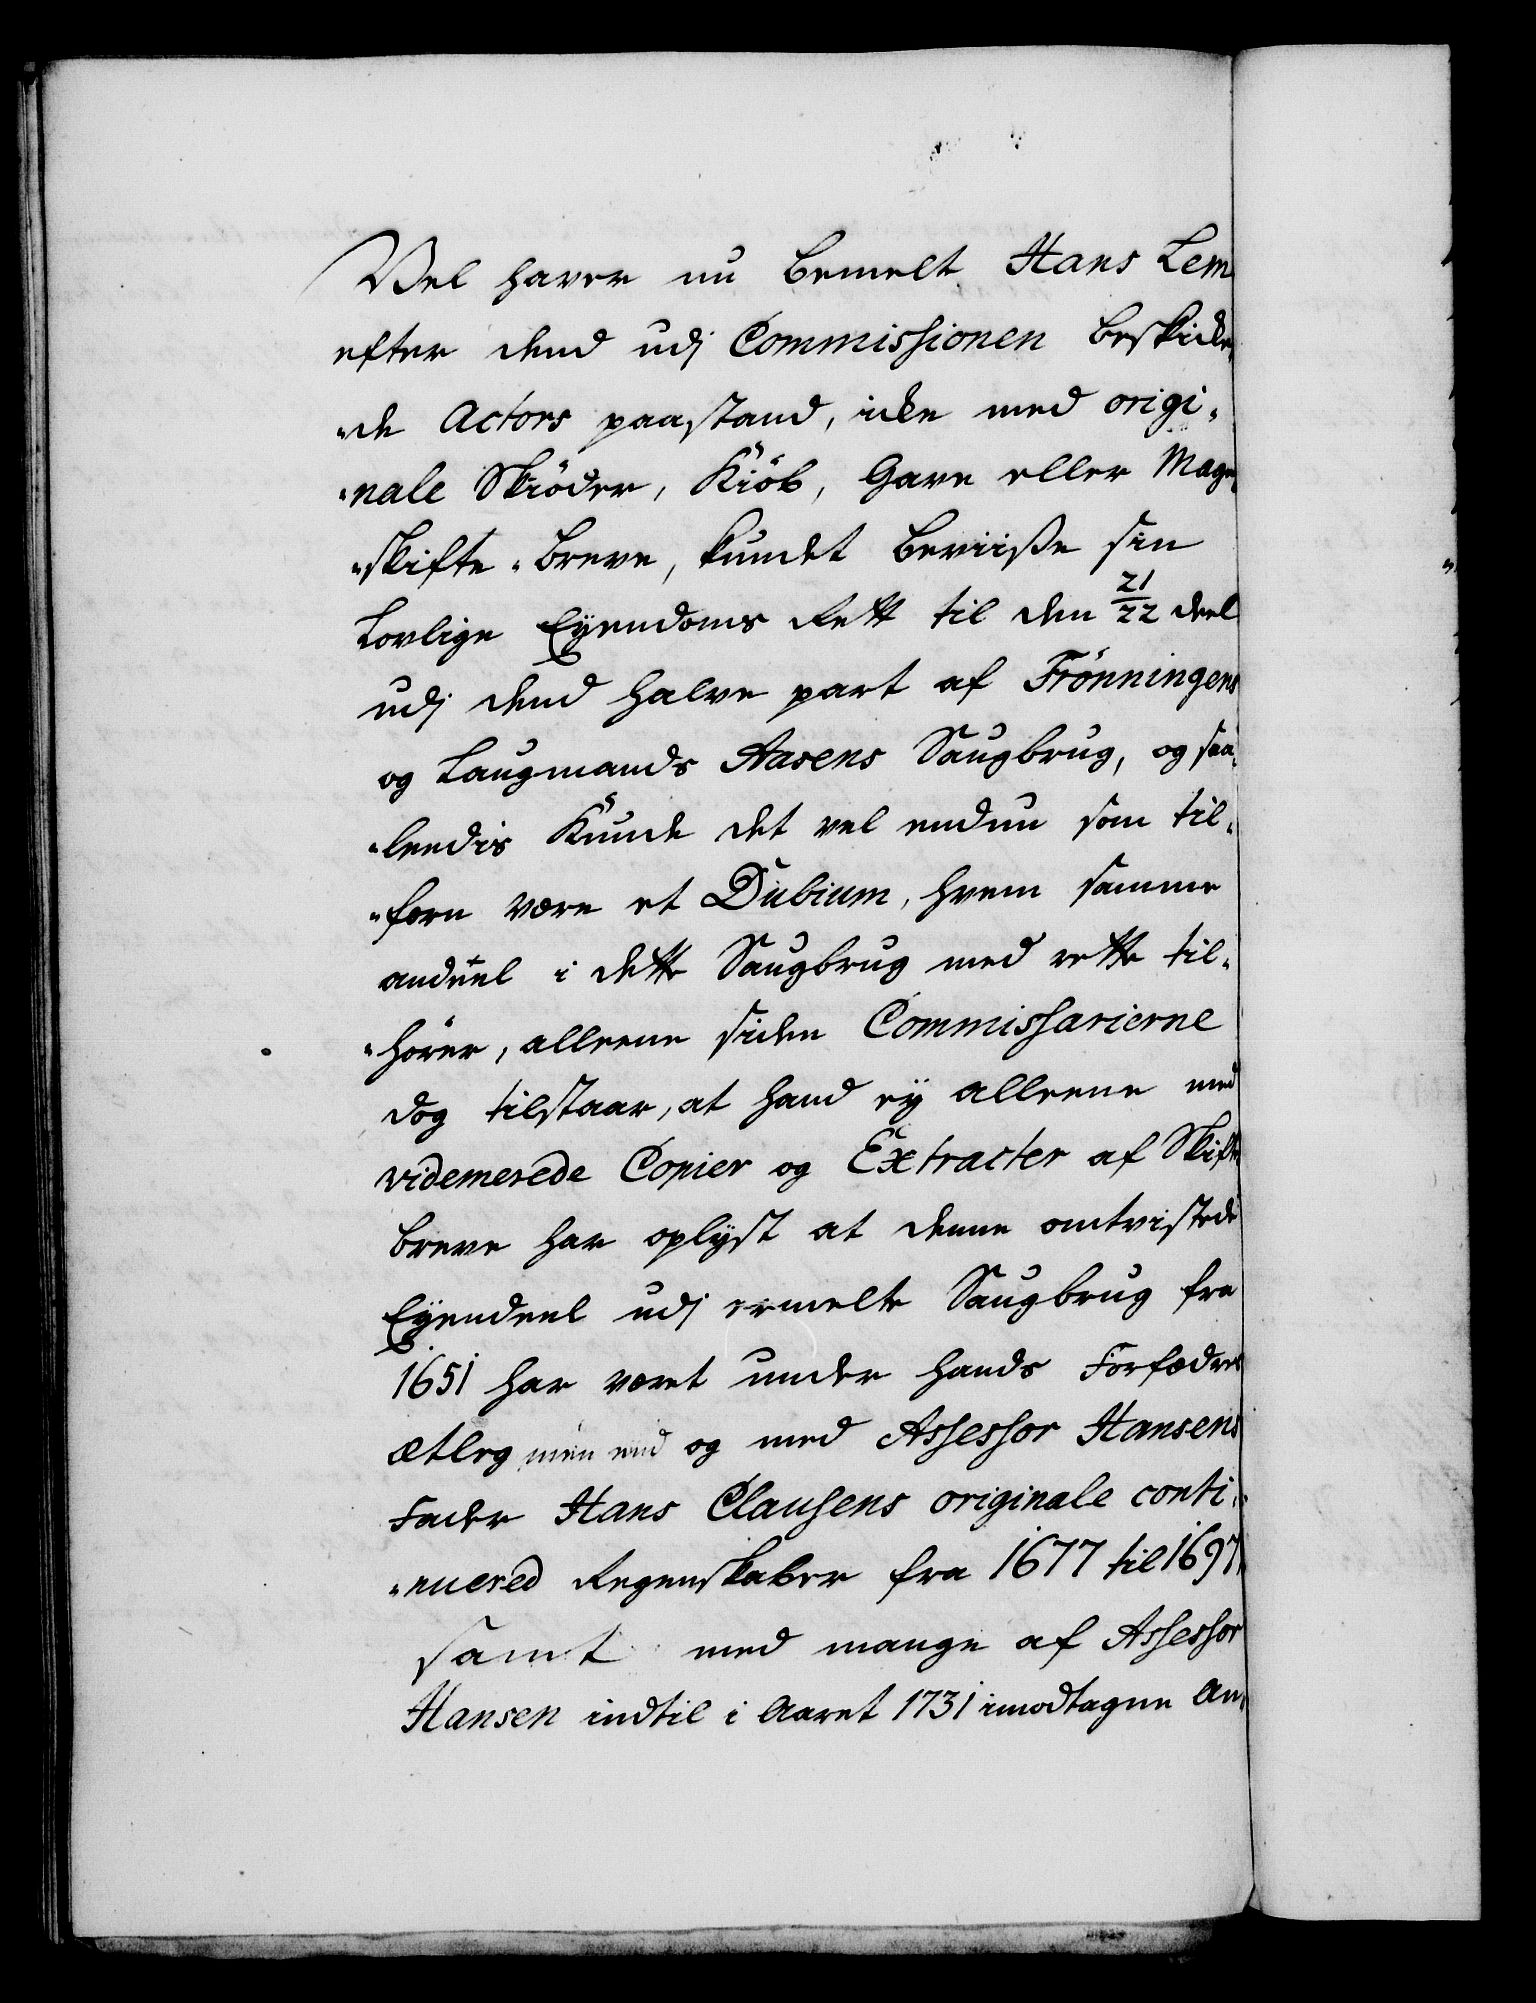 Vel haver nu bemelt Hans Lem
efter dend udj Commissionen beskicke„
„de Actors paastand, icke med origi„
„nale Skiöder, Kiöb, Gave eller Mage„
„skifte„breve, kundet beviiße sin
Lovlige Eyendoms Rett til den 21/22 deel
udj dend halve part af Frönningens
og Laugmands Aasens Saugbrug, og saa„
„leedis kunde det vel endnu som til„
„forn være et Dubium, hvem samme
andeel i dette Saugbrug med rette til„
„hörer, alleene siden Commissarierne
dog tilstaar, at hand ey alleene med
videmerede Copier og Extracter af Skifte
breve har oplyst at denne omtvistede
Eyendeel udj ermelte Saugbrug fra
1651 har været under hands Forfædres
ætleg men end og med Assessor Hansens
Fader Hans Clausens originale conti„
„nuered Regenskaber fra 1677 til 1697,
samt med mange af Assessor
Hansen indtil i Aaret 1731 imodtagne An„